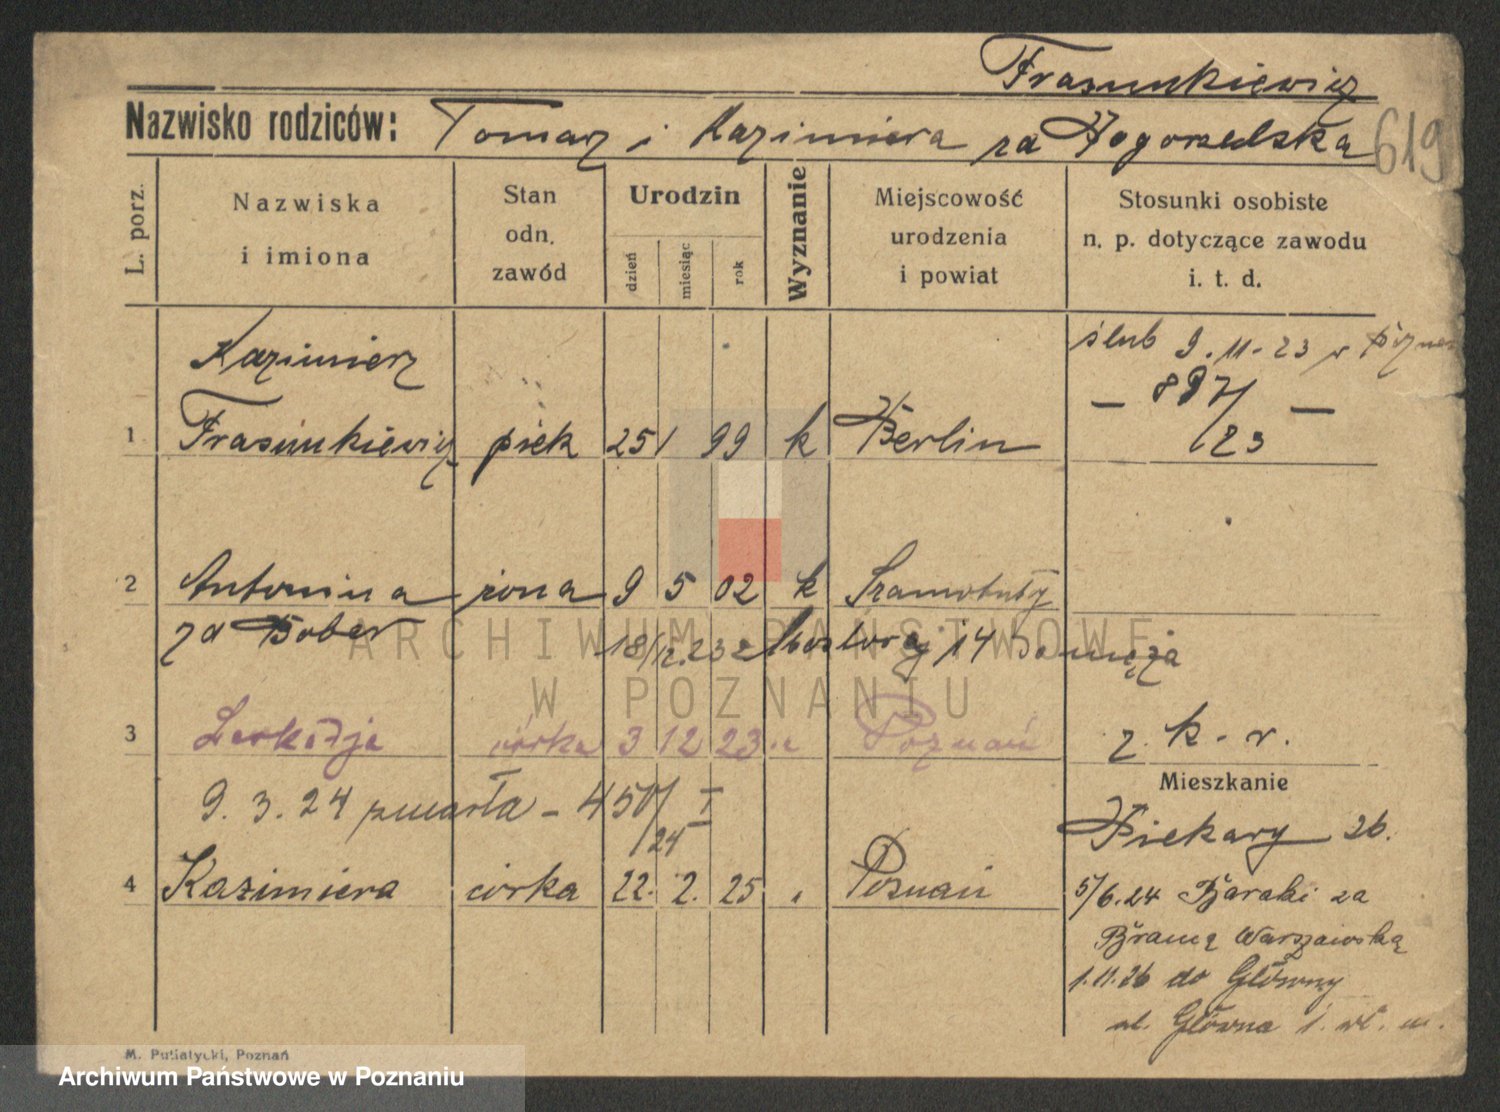 Frasunkiewicz
Nazwisko rodziców: Tomasz i Kazimiera za Pogorzelska 619
L. porz.
Nazwiska i imiona
Stan odn. zawód
Urodzin
dzień miesiąc rok
Wyznanie
Miejscowość urodzenia i powiat
Stosunki osobiste n. p. dotyczące zawodu i. t. d.
Kazimierz ślub 9.11.23 w
— 897/23 —
1 Frasunkiewicz piek 25 1 99 k Berlin
2 Antonina żona 9 5 02 k Szamotuły
za Bober 18/12.23 z 14 do męża
3 Leokadja córka 3 12 23 Poznań z. k. r.
9.3.24 zmarła – 450/24 I
Mieszkanie
Piekary 26.
4 Kazimiera córka 22. 2. 25 Poznań
5/6.24 Baraki za
Bramą Warszawską
1.11.26 do Główny
ul. Główna 1. wł. m.
M. Putiatycki, Poznań
ARCHIWUM PAŃSTWOWE
W POZNANIU
Archiwum Państwowe w Poznaniu